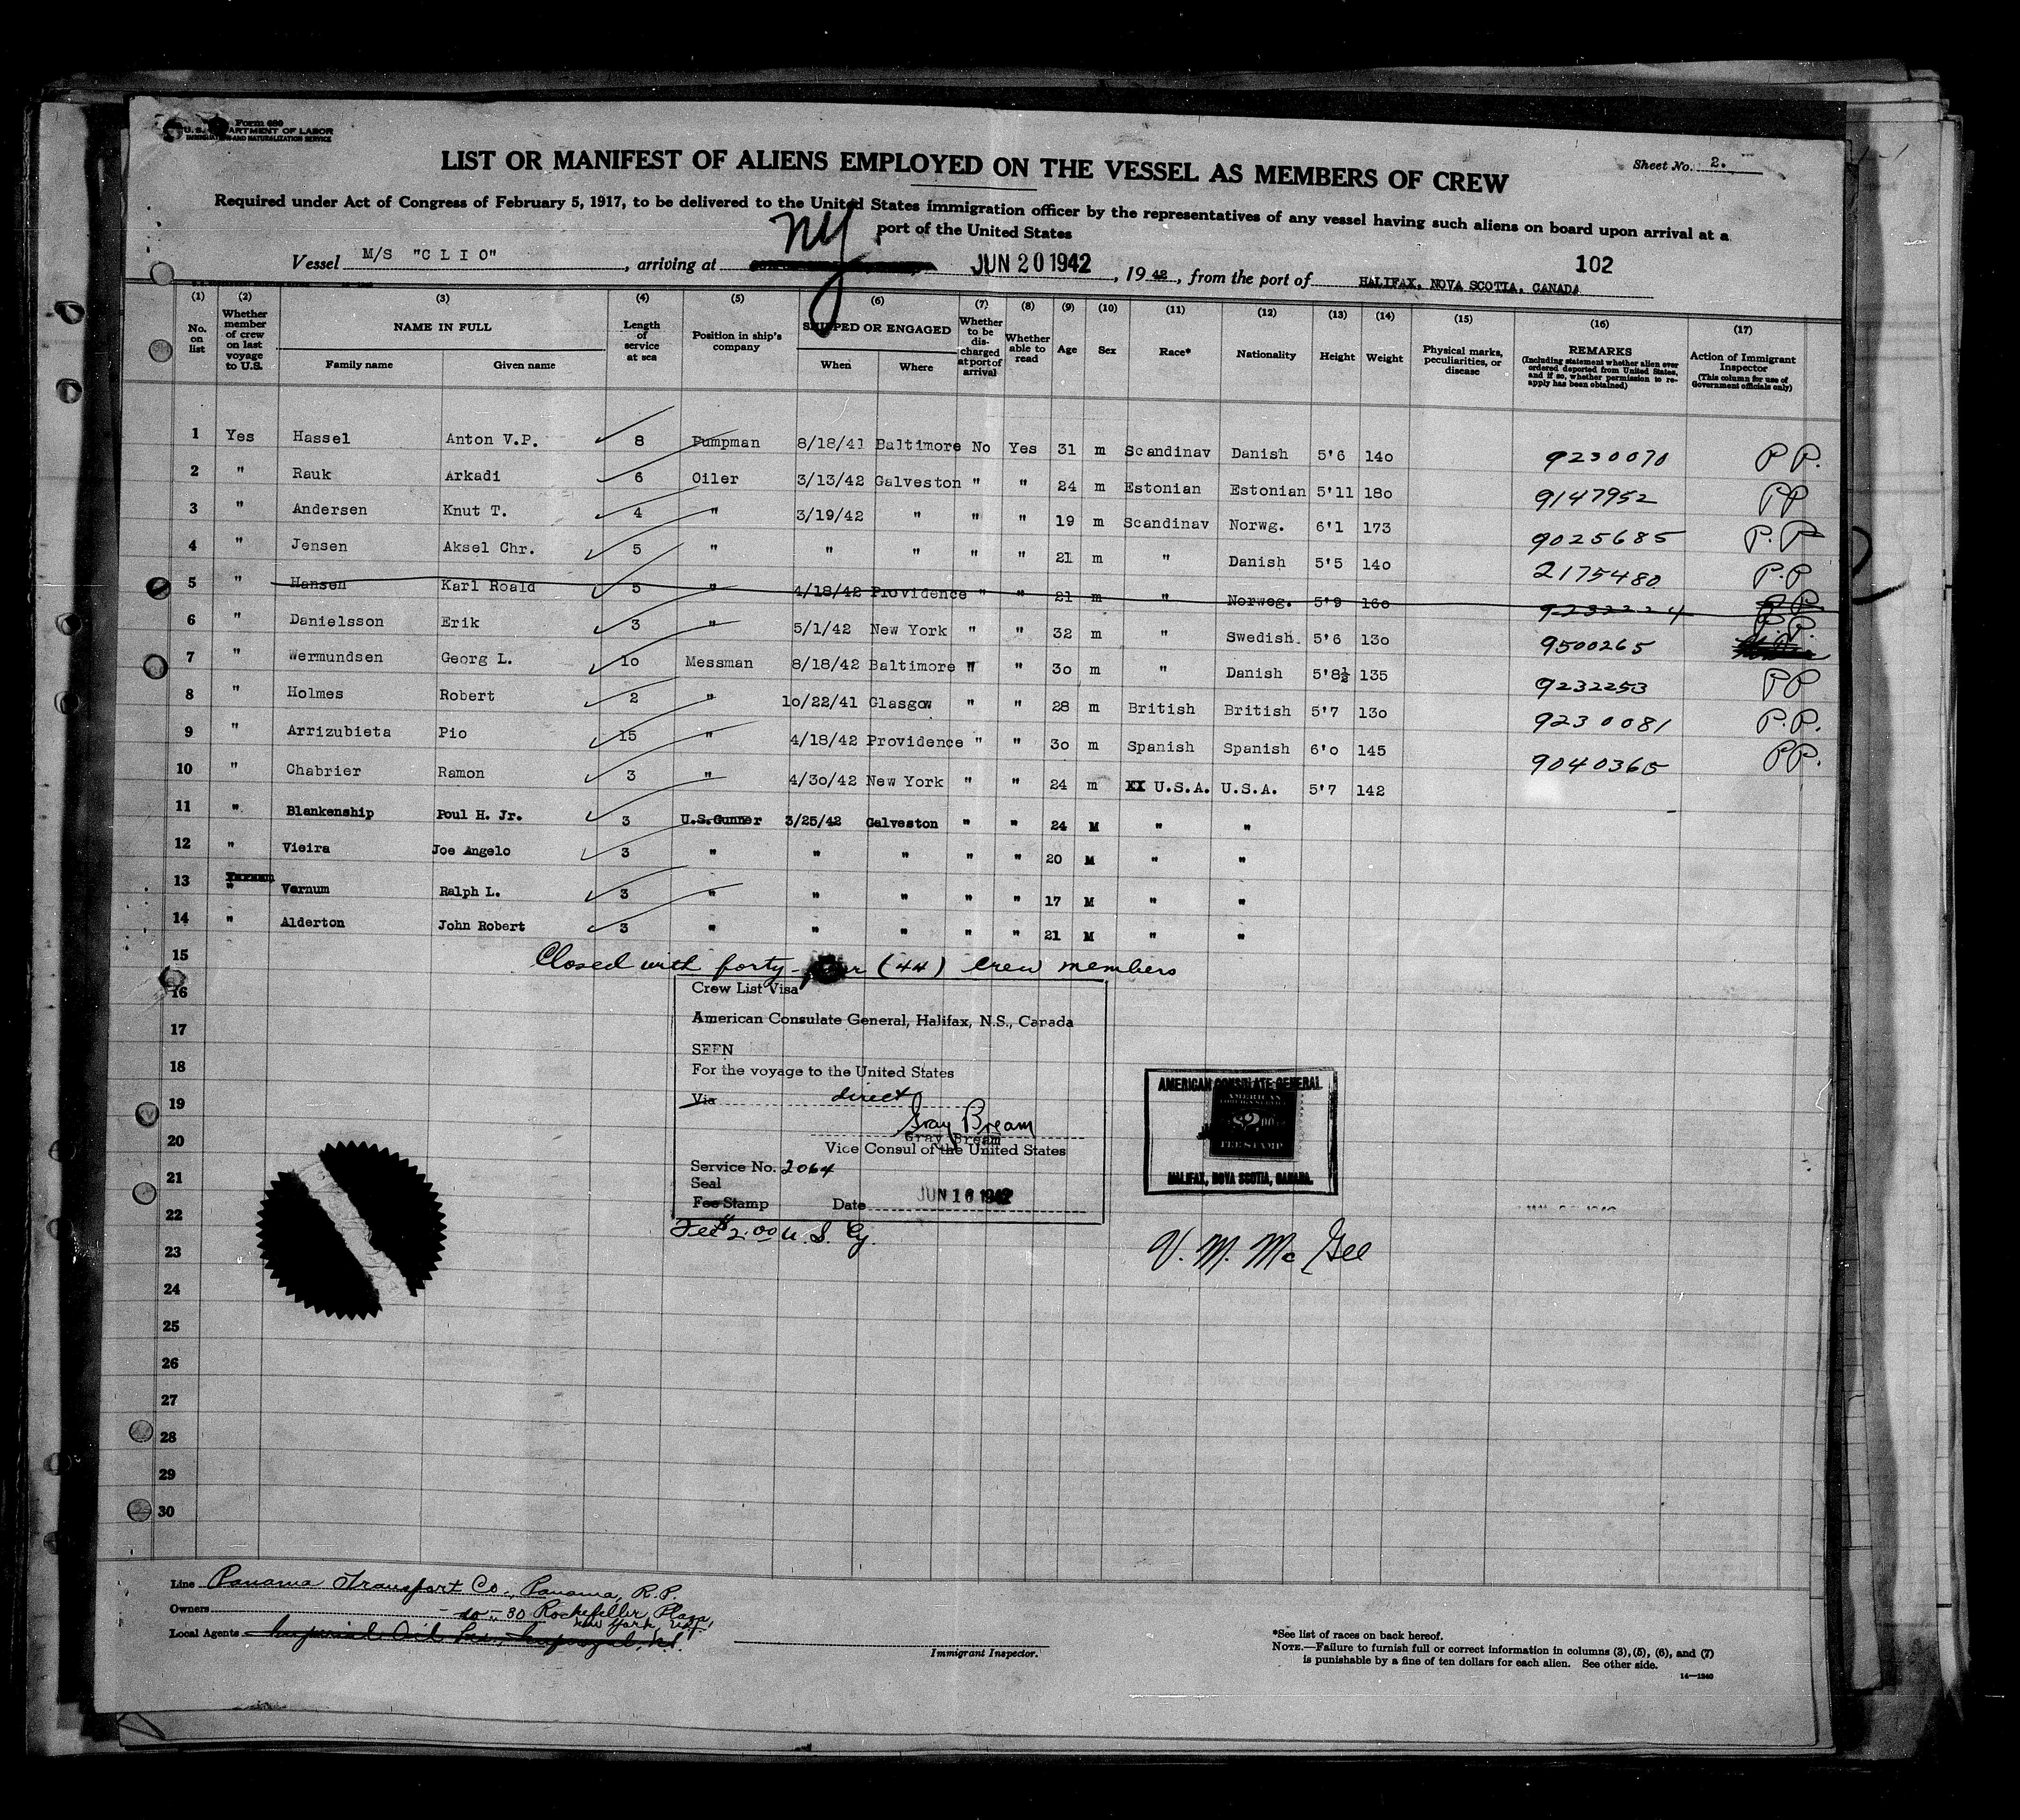 Form 680
U.S. DEPARTMENT OF LABOR
IMMIGRATION AND NATURALIZATION SERVICE
LIST OR MANIFEST OF ALIENS EMPLOYED ON THE VESSEL AS MEMBERS OF CREW
Sheet No. 2.
Required under Act of Congress of February 5, 1917, to be delivered to the United States immigration officer by the representatives of any vessel having such aliens on board upon arrival at a
port of the United States
Vessel M/S "CLIO", arriving at NY JUN 20 1942, 1942, from the port of HALIFAX, NOVA SCOTIA, CANADA
102
(1) (2) (3) (4) (5) (6) (7) (8) (9) (10) (11) (12) (13) (14) (15) (16) (17)
No. on list
Whether member of crew on last voyage to U.S.
NAME IN FULL
Family name
Given name
Length of service at sea
Position in ship's company
SHIPPED OR ENGAGED
When
Where
Whether to be discharged at port of arrival
Whether able to read
Age
Sex
Race*
Nationality
Height
Weight
Physical marks, peculiarities, or disease
REMARKS
(Including statement whether alien ever ordered deported from United States, and if so, whether permission to reapply has been obtained)
Action of Immigrant Inspector
(This column for use of Government officials only)
1 Yes Hassel Anton V.P. 8 Pumpman 8/18/41 Baltimore No Yes 31 m Scandinav Danish 5'6 140 9230070 P P.
2 " Rauk Arkadi 6 Oiler 3/13/42 Galveston " " 24 m Estonian Estonian 5'11 180 9147952 PP
3 " Andersen Knut T. 4 " 3/19/42 " " " 19 m Scandinav Norwg. 6'1 173 9025685 P.P
4 " Jensen Aksel Chr. 5 " " " " " 21 m " Danish 5'5 140 2175480 P.P
5 " Hansen Karl Roald 5 " 4/18/42 Providence " " 21 m " Norweg. 5'9 160 9232224 PP
6 " Danielsson Erik 3 " 5/1/42 New York " " 32 m " Swedish 5'6 130 9500265 P.P.
7 " Wermundsen Georg L. 10 Messman 8/18/42 Baltimore " " 30 m " Danish 5'8½ 135 9232253 PP
8 " Holmes Robert 2 " 10/22/41 Glasgow " " 28 m British British 5'7 130 9230081 P.P.
9 " Arrizubieta Pio 15 " 4/18/42 Providence " " 30 m Spanish Spanish 6'0 145 9040365 PP.
10 " Chabrier Ramon 3 " 4/30/42 New York " " 24 m XX U.S.A. U.S.A. 5'7 142
11 " Blankenship Poul H. Jr. 3 U.S.Gunner 3/25/42 Galveston " " 24 M " "
12 " Vieira Joe Angelo 3 " " " " " 20 M " "
13 " Varnum Ralph L. 3 " " " " " 17 M " "
14 " Alderton John Robert 3 " " " " " 21 M " "
15
Closed with forty-four (44) crew members
16
Crew List Visa
17
American Consulate General, Halifax, N.S., Canada
SEEN
18
For the voyage to the United States
19
Via direct
Gray Bream
Gray Bream
20
Vice Consul of the United States
Service No. 2064
21
Seal
Fee Stamp Date JUN 16 1942
22
Fee $2.00 U.S. Cy.
AMERICAN CONSULATE GENERAL
AMERICAN
FOREIGN SERVICE
$2.00
FEE STAMP
HALIFAX, NOVA SCOTIA, CANADA.
V. M. McGee
23
24
25
26
27
28
29
30
Line Panama Transport Co., Panama, R.P.
Owners 30 Rockefeller Plaza,
New York,
Local Agents Imperial Oil
Immigrant Inspector.
*See list of races on back hereof.
NOTE.—Failure to furnish full or correct information in columns (3), (5), (6), and (7)
is punishable by a fine of ten dollars for each alien. See other side.
14—1240